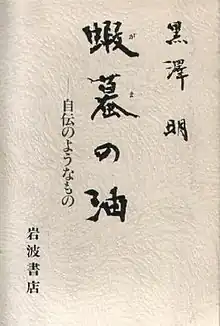 黒澤明
蝦蟇の油
がま
―自伝のようなもの
岩波書店